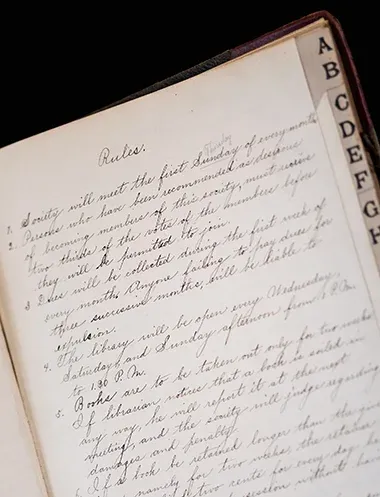 Rules.
Thursday
1. Society will meet the first Sunday of every month
2. Persons who have been recommended as desirous
of becoming members of this society, must receive
two thirds of the votes of the members before
they will be permitted to join.
3 Dues will be collected during the first week of
every month. Anyone failing to pay dues for
three successive months, will be liable to
expulsion.
4. The library will be open every Wednesday,
Saturday and Sunday afternoon from 1 P.M.
to 1.30 P.M.
5. Books are to be taken out only for two weeks
If librarian notices that a book is soiled in
any way, he will report it at the next
meeting, and the society will judge regarding
damages and penalty.
6 If a book be retained longer than the
namely for two weeks, the retainer
two cents for every day
session without
A
B
C
D
E
F
G
H